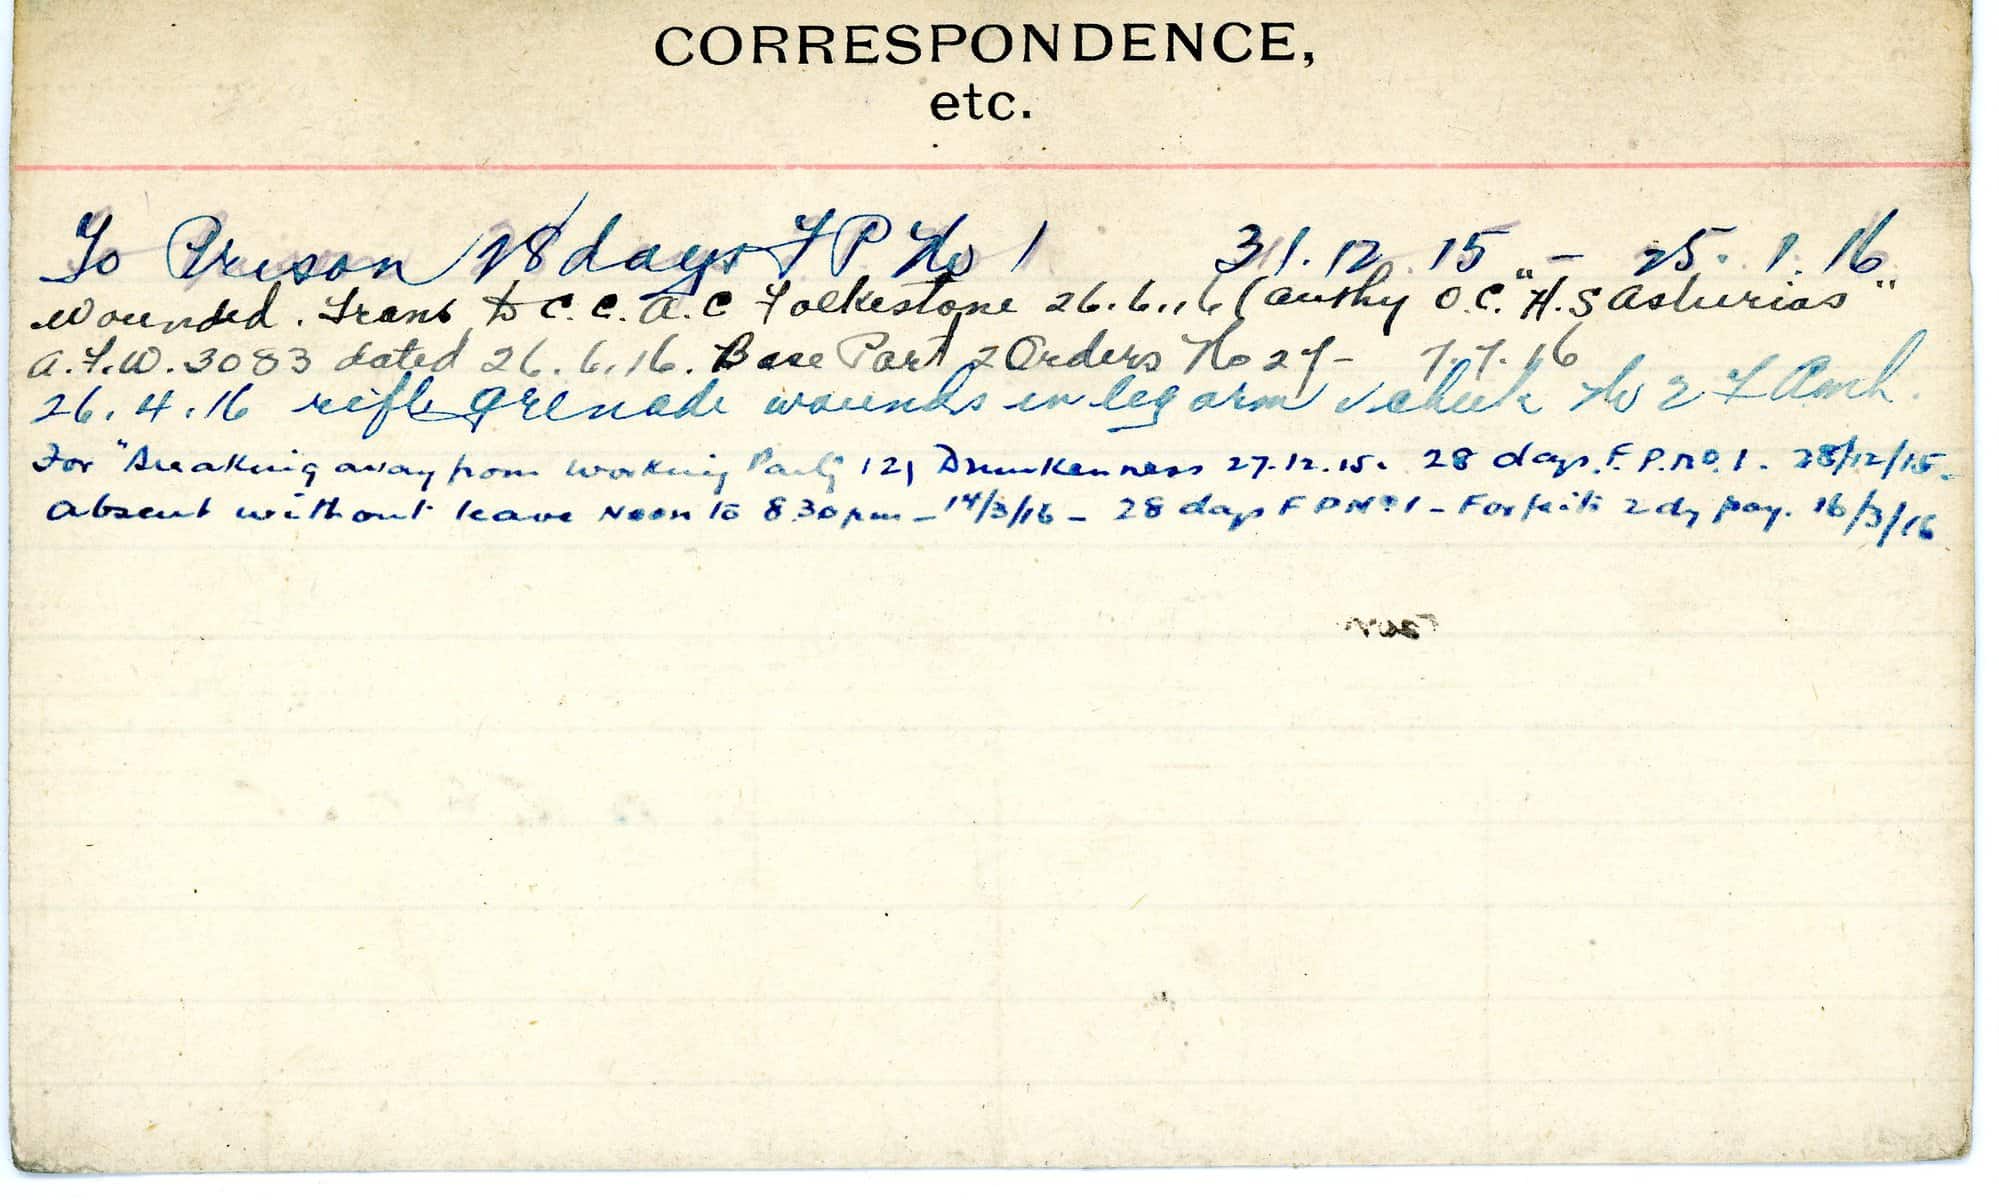 CORRESPONDENCE,
etc.
To Prison 28 days F P No 1 31.12.15 - 25.1.16
Wounded. Trans to C.C.A.C Folkestone 26.6.16 (authy O.C. "H.S Asturias"
A.F.W. 3083 dated 26.6.16. Base Part 2 Orders No 27- 7.7.16
26.4.16 rifle grenade wounds in leg arm & cheek No 2 F Amb.
For "Breaking away from Working Party 12) Drunkenness 27.12.15. 28 days. F.P. No. 1. 28/12/15-
Absent without leave Noon to 8 30 pm - 14/3/16 - 28 days F P No 1 - Forfeits 2 dy pay. 16/3/16